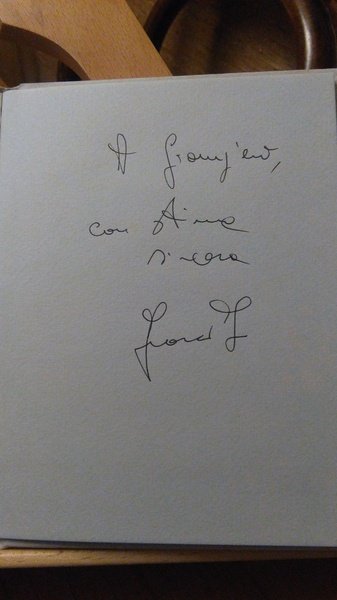 A Gianpiero,
con stima
sincera